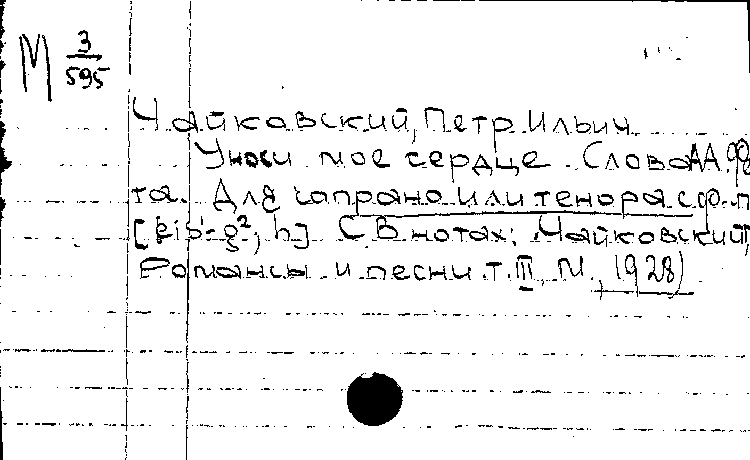 М 3/595
Чайковский, Петр Ильич
Уноси мое сердце. Слова А.А. Фе
та. Для сапрано или тенора с ф.-п
[eis¹-g², h] (В нотах: Чайковский,
Романсы и песни. т. III, М., 1928)